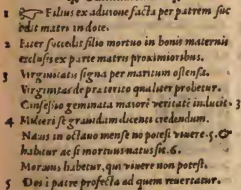 1 Filius ex aditione facta per patrem suc
cedit matri in dote.
2 Pater succedit filio mortuo in bonis maternis
exclusis ex parte matris proximioribus.
3 Virginitatis signa per maritum ostensa.
Virginitas de præterito qualiter probetur.
Confessio geminata maiori veritati inducit. 3
4 Mulieri se grauidam dicenti credendum.
Natus in octauo mense no potest viuere. 5.
habitur ac si mortuus natus sit. 6.
Moruus habetur, qui viuere non potest.
5 Dos à patre profecta ad quem reuertatur.